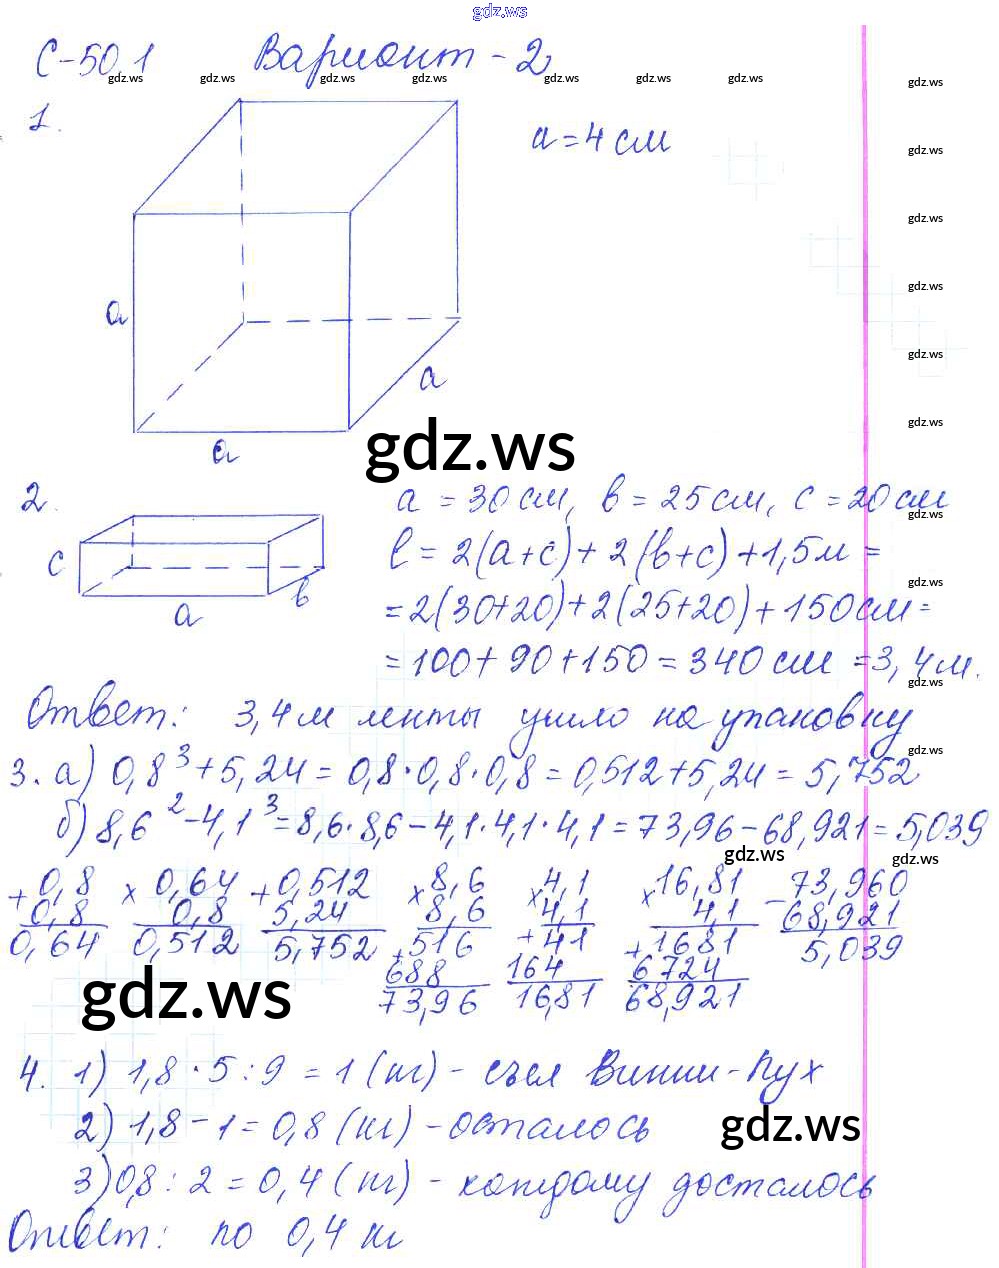 gdz.ws
С-50.1 Вариант-2
gdz.ws gdz.ws gdz.ws gdz.ws gdz.ws gdz.ws gdz.ws gdz.ws
1.
a = 4 см
gdz.ws
gdz.ws
gdz.ws
a
gdz.ws
a
gdz.ws
a
gdz.ws
2.
a = 30 см, в = 25 см, с = 20 см
gdz.ws
c
a
в
ℓ = 2(a+c) + 2(в+c) + 1,5м =
gdz.ws
= 2(30+20) + 2(25+20) + 150 см =
= 100 + 90 + 150 = 340 см = 3,4 м.
gdz.ws
Ответ: 3,4 м ленты ушло на упаковку
gdz.ws
3. а) 0,8³ + 5,24 = 0,8·0,8·0,8 = 0,512 + 5,24 = 5,752
б) 8,6² - 4,1³ = 8,6·8,6 - 4,1·4,1·4,1 = 73,96 - 68,921 = 5,039
gdz.ws gdz.ws
+ 0,8 × 0,64 + 0,512 × 8,6 × 4,1 × 16,81 - 73,960
0,8 0,8 5,24 8,6 4,1 4,1 68,921
0,64 0,512 5,752 + 516 + 41 + 1681 5,039
688 164 6724
73,96 16,81 68,921
gdz.ws
4. 1) 1,8 · 5 : 9 = 1 (кг) - съел Винни-Пух
2) 1,8 - 1 = 0,8 (кг) - осталось
gdz.ws
3) 0,8 : 2 = 0,4 (кг) - каждому досталось
Ответ: по 0,4 кг